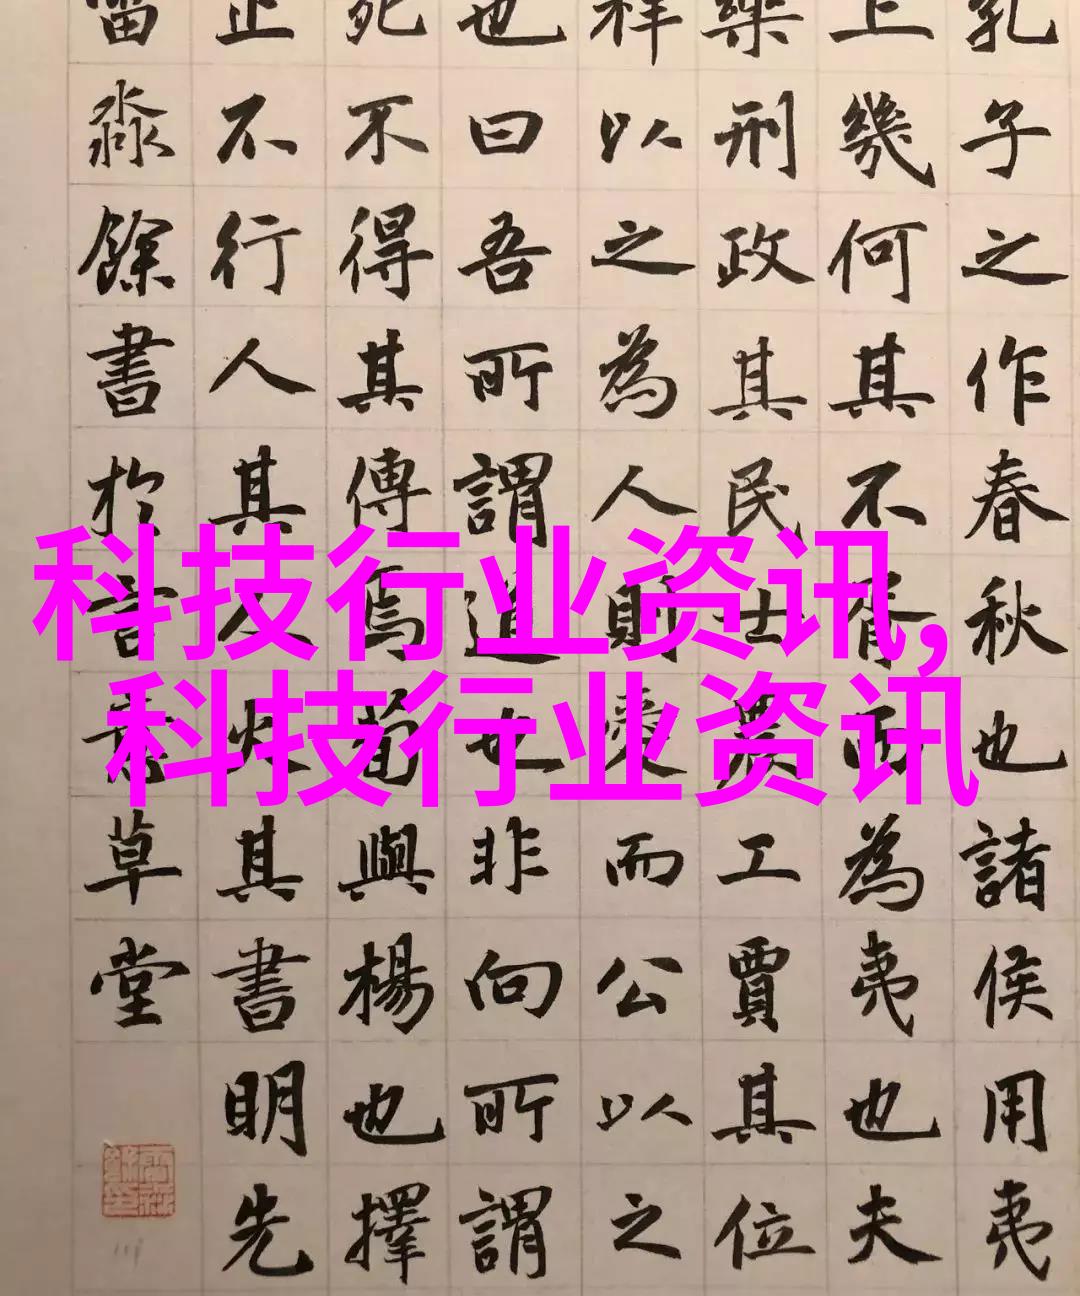 孔子之作春秋也諸侯用夷
上幾何其不胥而為夷也夫
樂刑政其民士農工賈其位
祥以之為人則愛而公以之
也曰吾所謂道也非向所謂
死不得其傳焉荀與楊也擇
止不行人其人火其書明先
淼餘書於草堂
科技行业资讯,
科技行业资讯